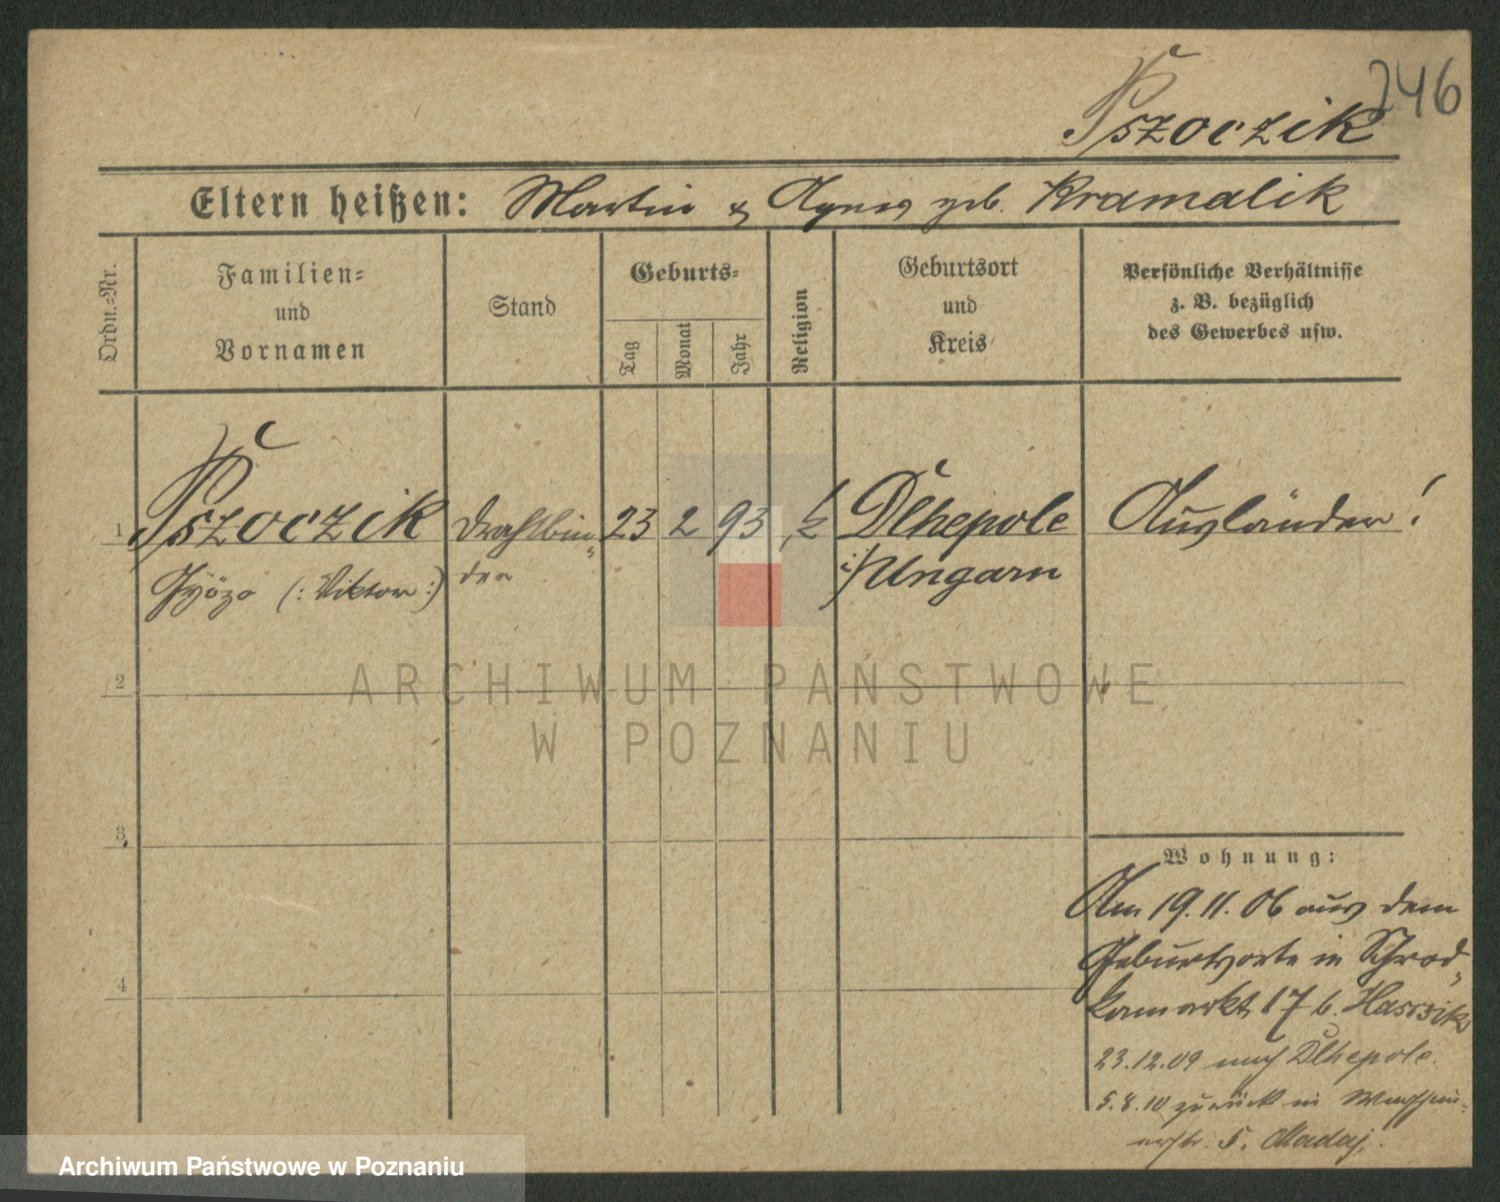 246
Pszoczik
Eltern heißen: Martin & Agnes geb. Kramalik
Ordn.-Nr.
Familien-
und
Vornamen
Stand
Geburts-
Tag
Monat
Jahr
Religion
Geburtsort
und
Kreis
Persönliche Verhältnisse
z. B. bezüglich
des Gewerbes usw.
1 Pszoczik Drahtbin- 23 2 93 k Dlhepole Ausländer!
Györo (: Viktor :) der i/Ungarn
2
3
4
Wohnung:
Am 19.11.06 aus dem
Geburtsorte in Schrod-
kamarkt 17 b. Hasszik
23.12.09 nach Dlhepole.
5.8.10 zurück in
5. Madaj.
ARCHIWUM PAŃSTWOWE
W POZNANIU
Archiwum Państwowe w Poznaniu